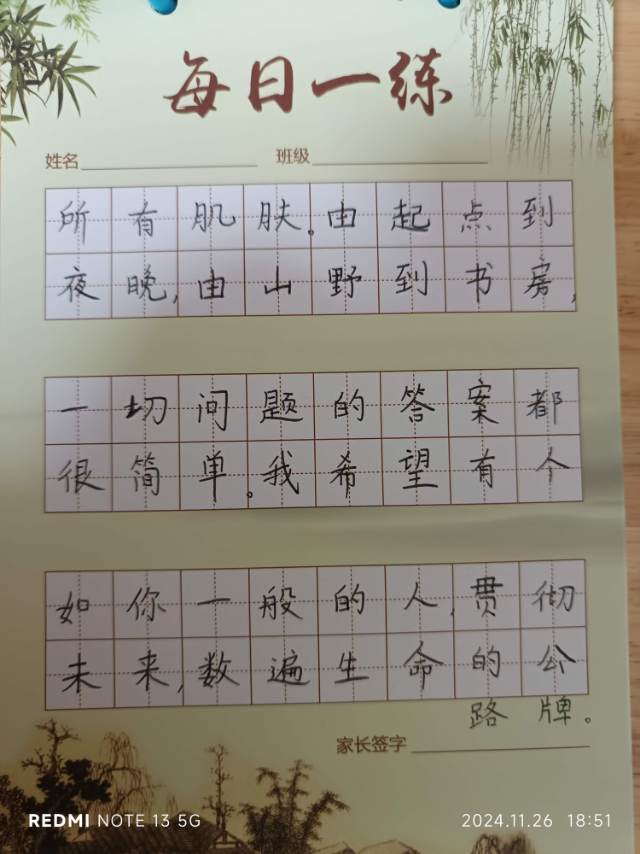 每日一练
姓名 班级
所有肌肤。由起点到
夜晚,由山野到书房,
一切问题的答案都
很简单。我希望有个
如你一般的人,贯彻
未来,数遍生命的公
路牌。
家长签字
REDMI NOTE 13 5G 2024.11.26 18:51